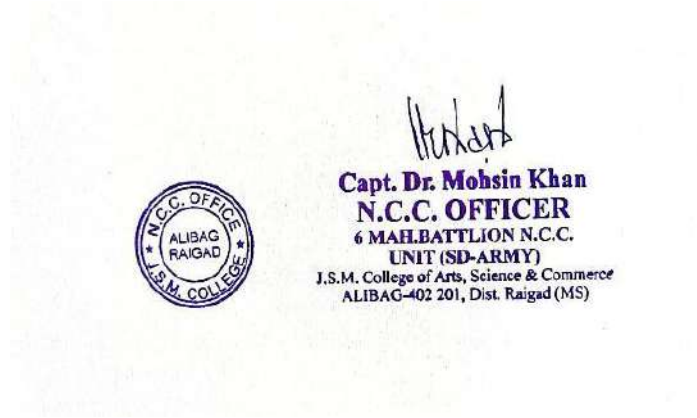 N.C.C. OFFICE
ALIBAG
RAIGAD
J.S.M. COLLEGE
Capt. Dr. Mohsin Khan
N.C.C. OFFICER
6 MAH.BATTLION N.C.C.
UNIT (SD-ARMY)
J.S.M. College of Arts, Science & Commerce
ALIBAG-402 201, Dist. Raigad (MS)